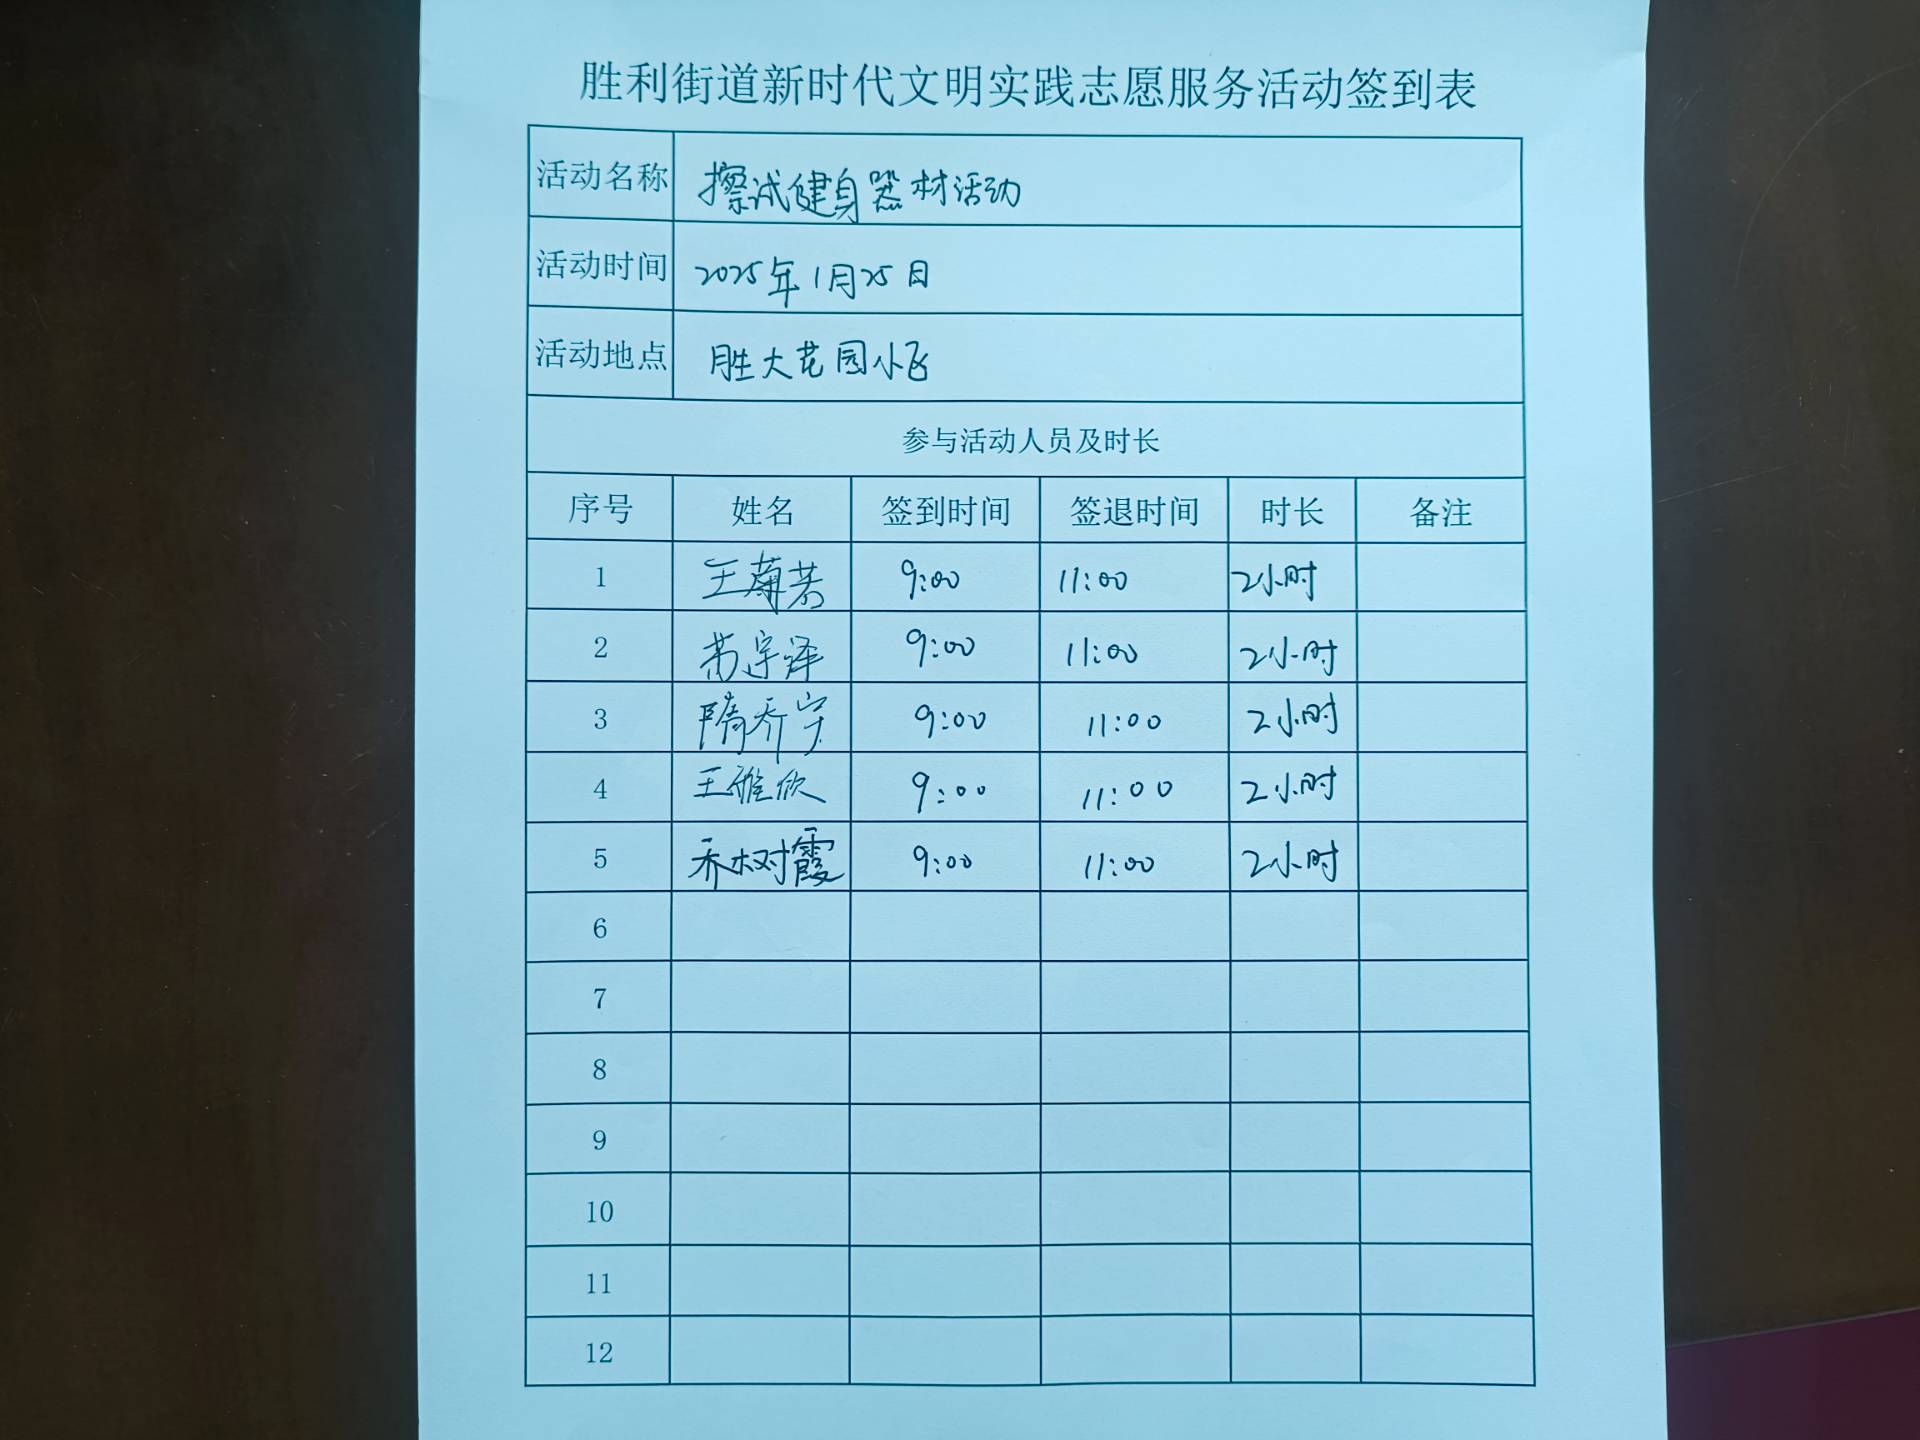 胜利街道新时代文明实践志愿服务活动签到表
活动名称 擦试健身器材活动
活动时间 2025年1月25日
活动地点 胜大花园小区
参与活动人员及时长
序号 姓名 签到时间 签退时间 时长 备注
1 王菊若 9:00 11:00 2小时
2 宇泽 9:00 11:00 2小时
3 隋乔 9:00 11:00 2小时
4 王雅欣 9:00 11:00 2小时
5 乔树霞 9:00 11:00 2小时
6
7
8
9
10
11
12